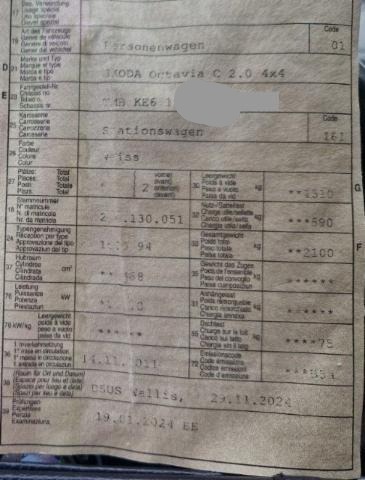 Dep. Verwendung
Usage spécial
Uso speciale
Diever spezial
Art des Fahrzeugs
Genre de véhicule
Genere di veicolo
Gener dal vehichel
Personenwagen
Code
01
D 21 Marke und Typ
Marque et type
Marca e tipo
Marca e tip
SKODA Octavia C 2.0 4x4
E 23 Fahrgestell-Nr.
Châssis no
Telaio n.
Schassis nr.
TMB KE6 1
25 Karosserie
Carrosserie
Carrozzeria
Carossaria
Stationswagen
Code
161
26 Farbe
Couleur
Colore
Colur
weiss
27 Plätze: Total
Places: Total
Posti: Totale
Plazs: Total
2
vorne)
avant)
anteriori)
davant)
30 Leergewicht
Poids à vide
Peso a vuoto
Paisa da vid
kg
**1510
G
18 Stammnummer
N° matricule
N. di matricola
Nr. da matricla
.130.051
32 Nutz-/Sattellast
Charge utile/sellette
Carico utile/sella
Chargia utila/sella
kg
***590
24 Typengenehmigung
Réception par type
Approvazione del tipo
Approvaziun dal tip
94
33 Gesamtgewicht
Poids total
Peso totale
Paisa totala
kg
**2100
F
37 Hubraum
Cylindrée
Cilindrata
Cilindrada
cm³
35 Gewicht des Zuges
Poids de l'ensemble
Peso del convoglio
Paisa cumposiziun
kg
******
76 Leistung
Puissance
Potenza
Prestaziun
kW
31 Anhängelast
Poids remorquable
Carico rimorchiato
Chargia annexa
kg
******
78 kW/kg
Leergewicht
poids à vide
peso a vuoto
paisa da vid
55 Dachlast
Charge sur le toit
Carico sul tetto
Chargia sin il tetg
kg
****75
36 1. Inverkehrsetzung
1re mise en circulation
1a messa in circolazione
1. entrada en circulaziun
14.11.2011
72 Emissionscode
Code émissions
Codice emissioni
Code d'emissiuns
38 (Raum für Ort und Datum)
(Espace pour lieu et date)
(Spazio per luogo e data)
(Spazi per lieu e data)
DSUS Wallis, 29.11.2024
39 Prüfungen
Expertises
Perizie
Examinaziuns
19.01.2024 EE